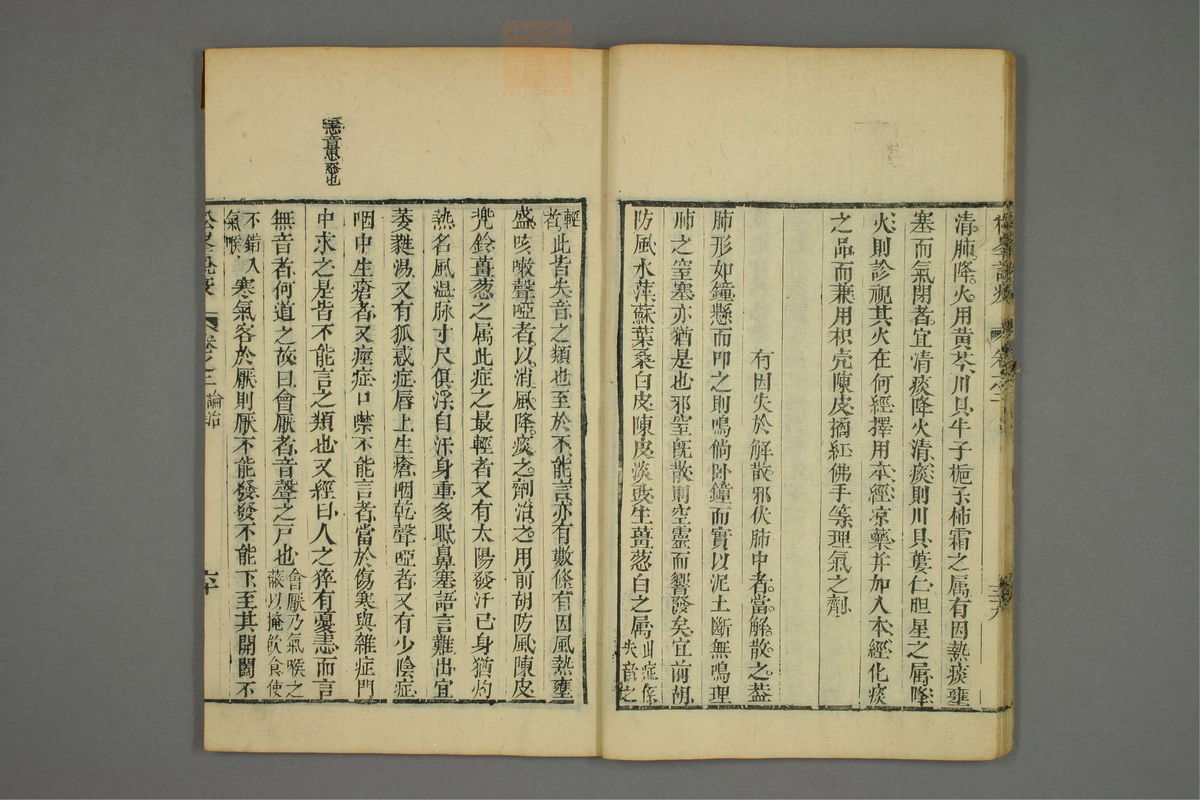 清肺降火用黃芩川貝牛子梔子柿霜之屬有因熱痰壅
塞而氣閉者宜清痰降火清痰則川貝蔞仁胆星之屬降
火則診視其火在何經擇用本經凉藥并加入本經化痰
之品而兼用枳壳陳皮橘紅佛手等理氣之劑
有因失於解散邪伏肺中者當解散之蓋
肺形如鐘懸而叩之則鳴倘卧鐘而實以泥土斷無鳴理
肺之窒塞亦猶是也邪窒旣散則空靈而響發矣宜前胡
防風水萍蘇葉桑白皮陳皮淡豉生薑葱白之屬此症係失音之
輕者此皆失音之類也至於不能言亦有數條有因風熱壅
盛咳嗽聲啞者以消風降痰之劑治之用前胡防風陳皮
兠鈴薑葱之属此症之最輕者又有太陽發汗已身猶灼
熱名風温脉寸尺俱浮自汗身重多眠鼻塞語言難出宜
萎蕤湯又有狐惑症唇上生瘡咽乾聲啞者又有少陰症
咽中生瘡者又痙症口噤不能言者當於傷寒與雜症門
中求之是皆不能言之類也又經曰人之猝有憂恚而言
恚音惠忿也
無音者何道之故曰會厭者音聲之戶也會厭乃氣喉之蔽以掩飲食使
不錯入氣喉寒氣客於厭則厭不能發發不能下至其開闔不
松峯說疫
卷之二 論治
六十